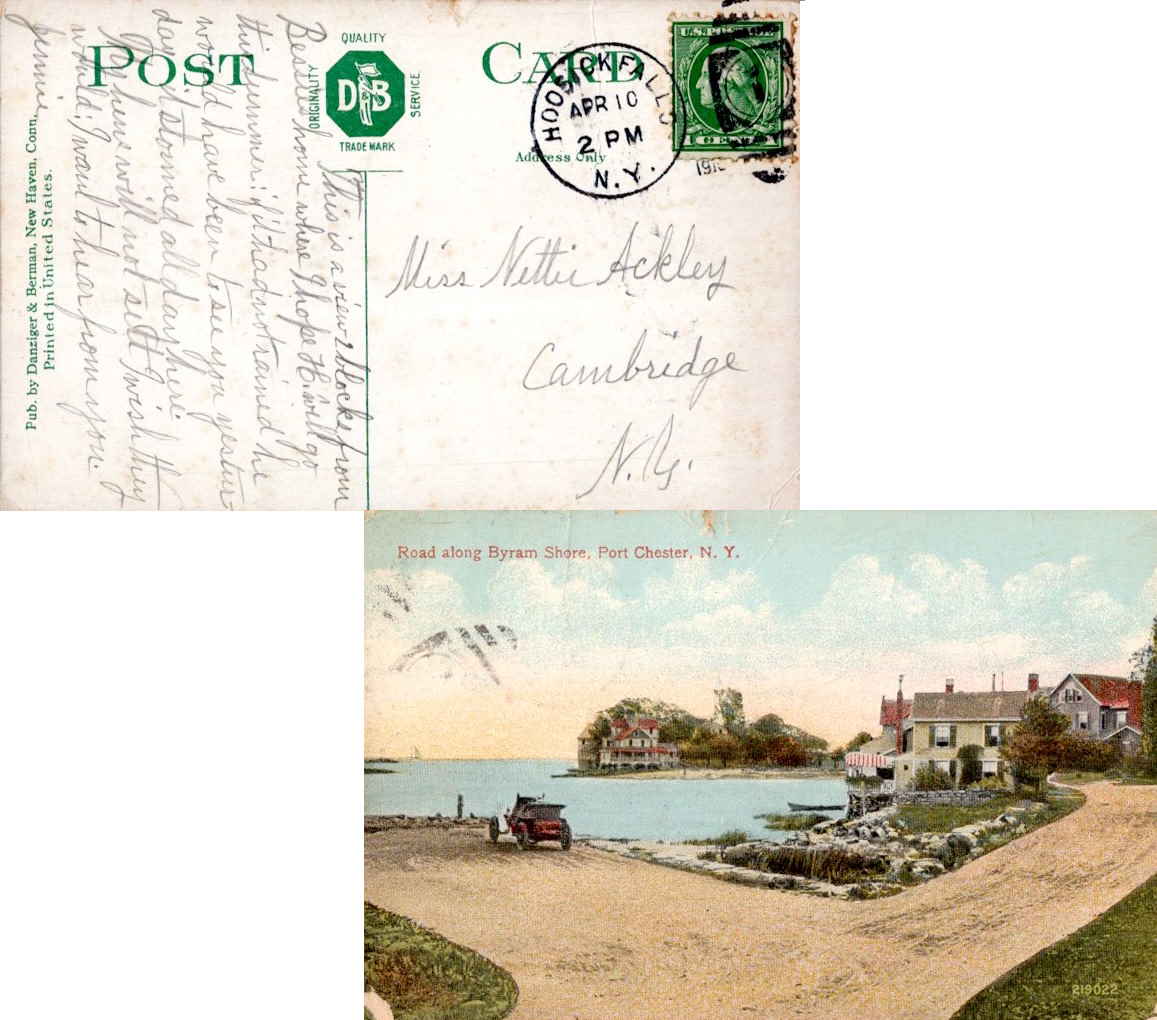 POST CARD
QUALITY
ORIGINALITY
DB
SERVICE
TRADE MARK
Address Only
HOOSICK FALLS
APR 10
2 PM
N.Y.
191
1 CENT
This is a view 2 blocks from
Bessie home where I hope H. will go
this summer: if it had not rained he
would have been to see you yestur-
day it stormed all day here:
My hens will not sett I wish they
would: I want to hear from you.
Jennie
Miss Nettie Ackley
Cambridge
N.Y.
Pub. by Danziger & Berman, New Haven, Conn.
Printed in United States.
Road along Byram Shore, Port Chester, N. Y.
219022